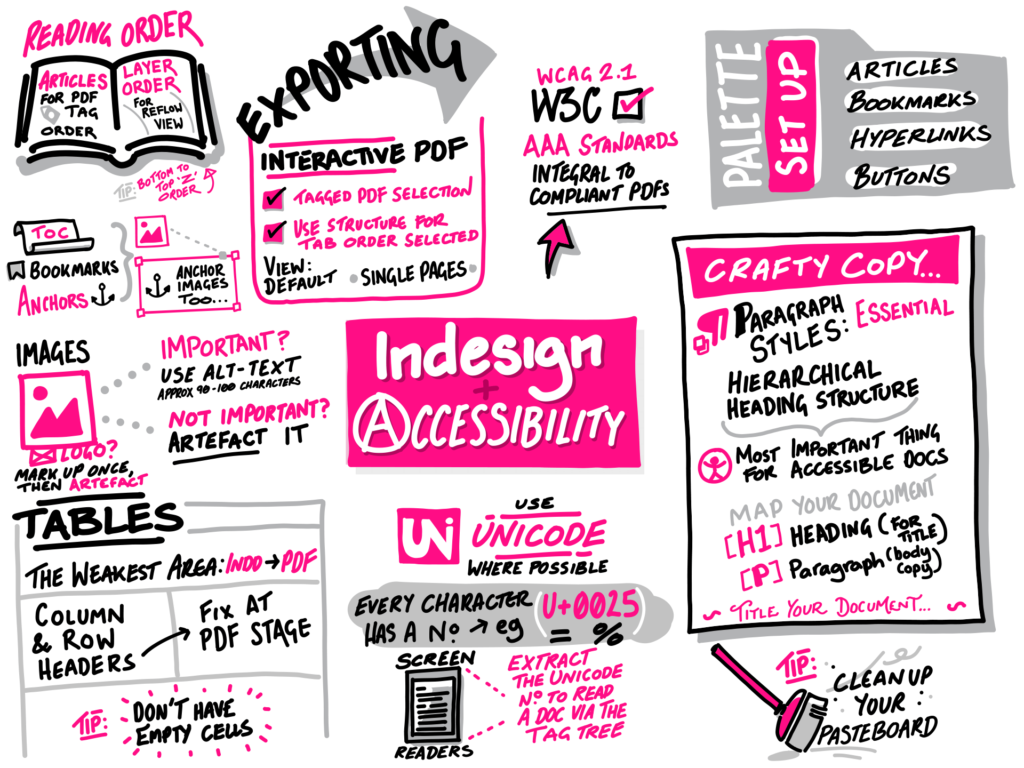 READING ORDER
ARTICLES
FOR PDF
TAG
ORDER
LAYER
ORDER
FOR
REFLOW
VIEW
TIP: BOTTOM TO
TOP 'Z'
ORDER
EXPORTING
INTERACTIVE PDF
TAGGED PDF SELECTION
USE STRUCTURE FOR
TAB ORDER SELECTED
VIEW:
DEFAULT • SINGLE PAGES •
WCAG 2.1
W3C
AAA STANDARDS
INTEGRAL TO
COMPLIANT PDFs
PALETTE
SET UP
ARTICLES
BOOKMARKS
HYPERLINKS
BUTTONS
TOC
BOOKMARKS
ANCHORS
ANCHOR
IMAGES
TOO...
IMAGES
IMPORTANT?
USE ALT-TEXT
APPROX 90-100 CHARACTERS
NOT IMPORTANT?
ARTEFACT IT
LOGO?
MARK UP ONCE,
THEN ARTEFACT
Indesign
+
ACCESSIBILITY
CRAFTY COPY...
PARAGRAPH
STYLES: ESSENTIAL
HIERARCHICAL
HEADING STRUCTURE
MOST IMPORTANT THING
FOR ACCESSIBLE DOCS
MAP YOUR DOCUMENT
[H1] HEADING (FOR TITLE)
[P] Paragraph (body copy)
~ TITLE YOUR DOCUMENT... ~
TABLES
THE WEAKEST AREA: INDD → PDF
COLUMN
& ROW
HEADERS
FIX AT
PDF STAGE
TIP: DON'T HAVE
EMPTY CELLS
UNi
USE
UNICODE
WHERE POSSIBLE
EVERY CHARACTER
HAS A No → eg
U+0025
= %
SCREEN
READERS
EXTRACT
THE UNICODE
No TO READ
A DOC VIA THE
TAG TREE
TIP:
CLEAN UP
YOUR
PASTEBOARD